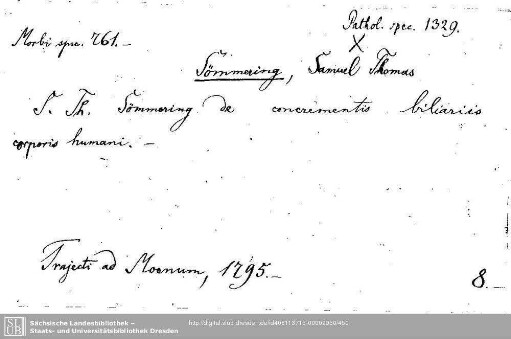 Pathol. spec. 1329.
Morbi spec. 761.-
X
Sömmering, Samuel Thomas
S. Th. Sömmering de concrementis biliariis
corporis humani. -
Trajecti ad Moenum, 1795.-
8.-
SLUB
Sächsische Landesbibliothek –
Staats- und Universitätsbibliothek Dresden